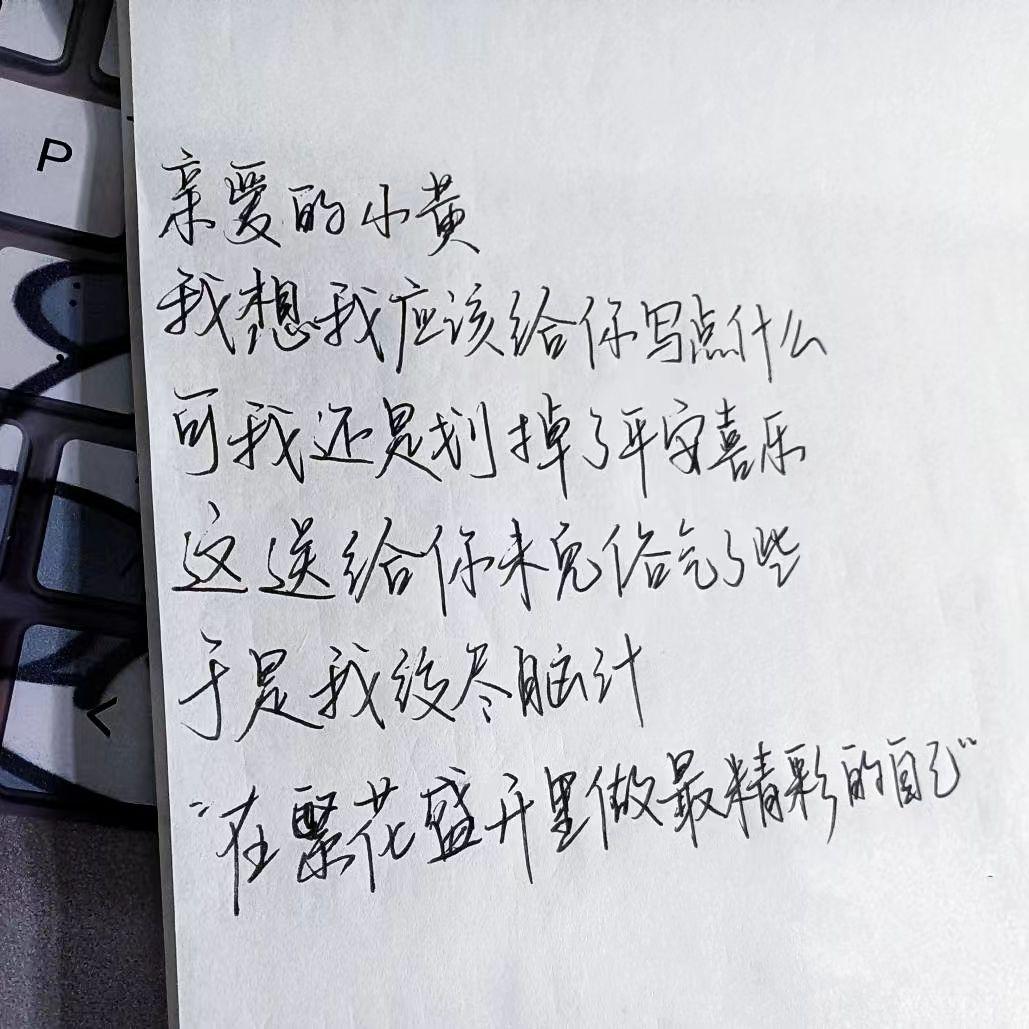 P
亲爱的小黄
我想我应该给你写点什么
可我还是划掉了平安喜乐
这送给你未免俗气了些
于是我绞尽脑汁
“在繁花盛开里做最精彩的自己”
<